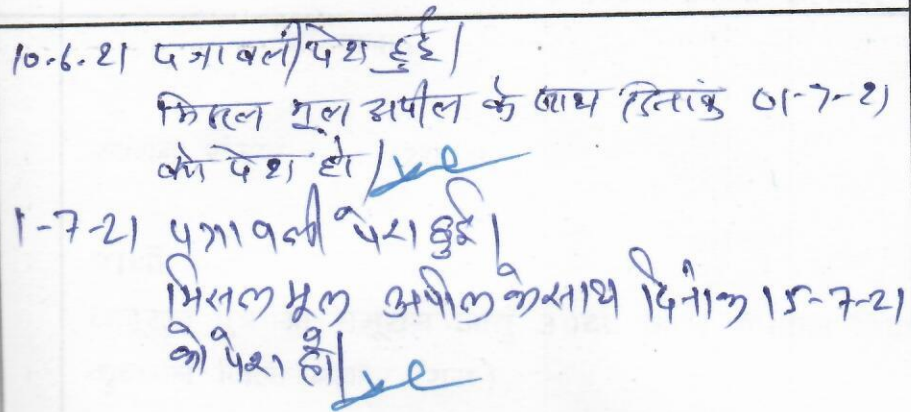 10-6-21 पत्रावली पेश हुई।
मिसल मूल अपील के साथ दिनांक 01-7-21
को पेश हो।
1-7-21 पत्रावली पेश हुई।
मिसल मूल अपील के साथ दिनांक 15-7-21
को पेश हो।